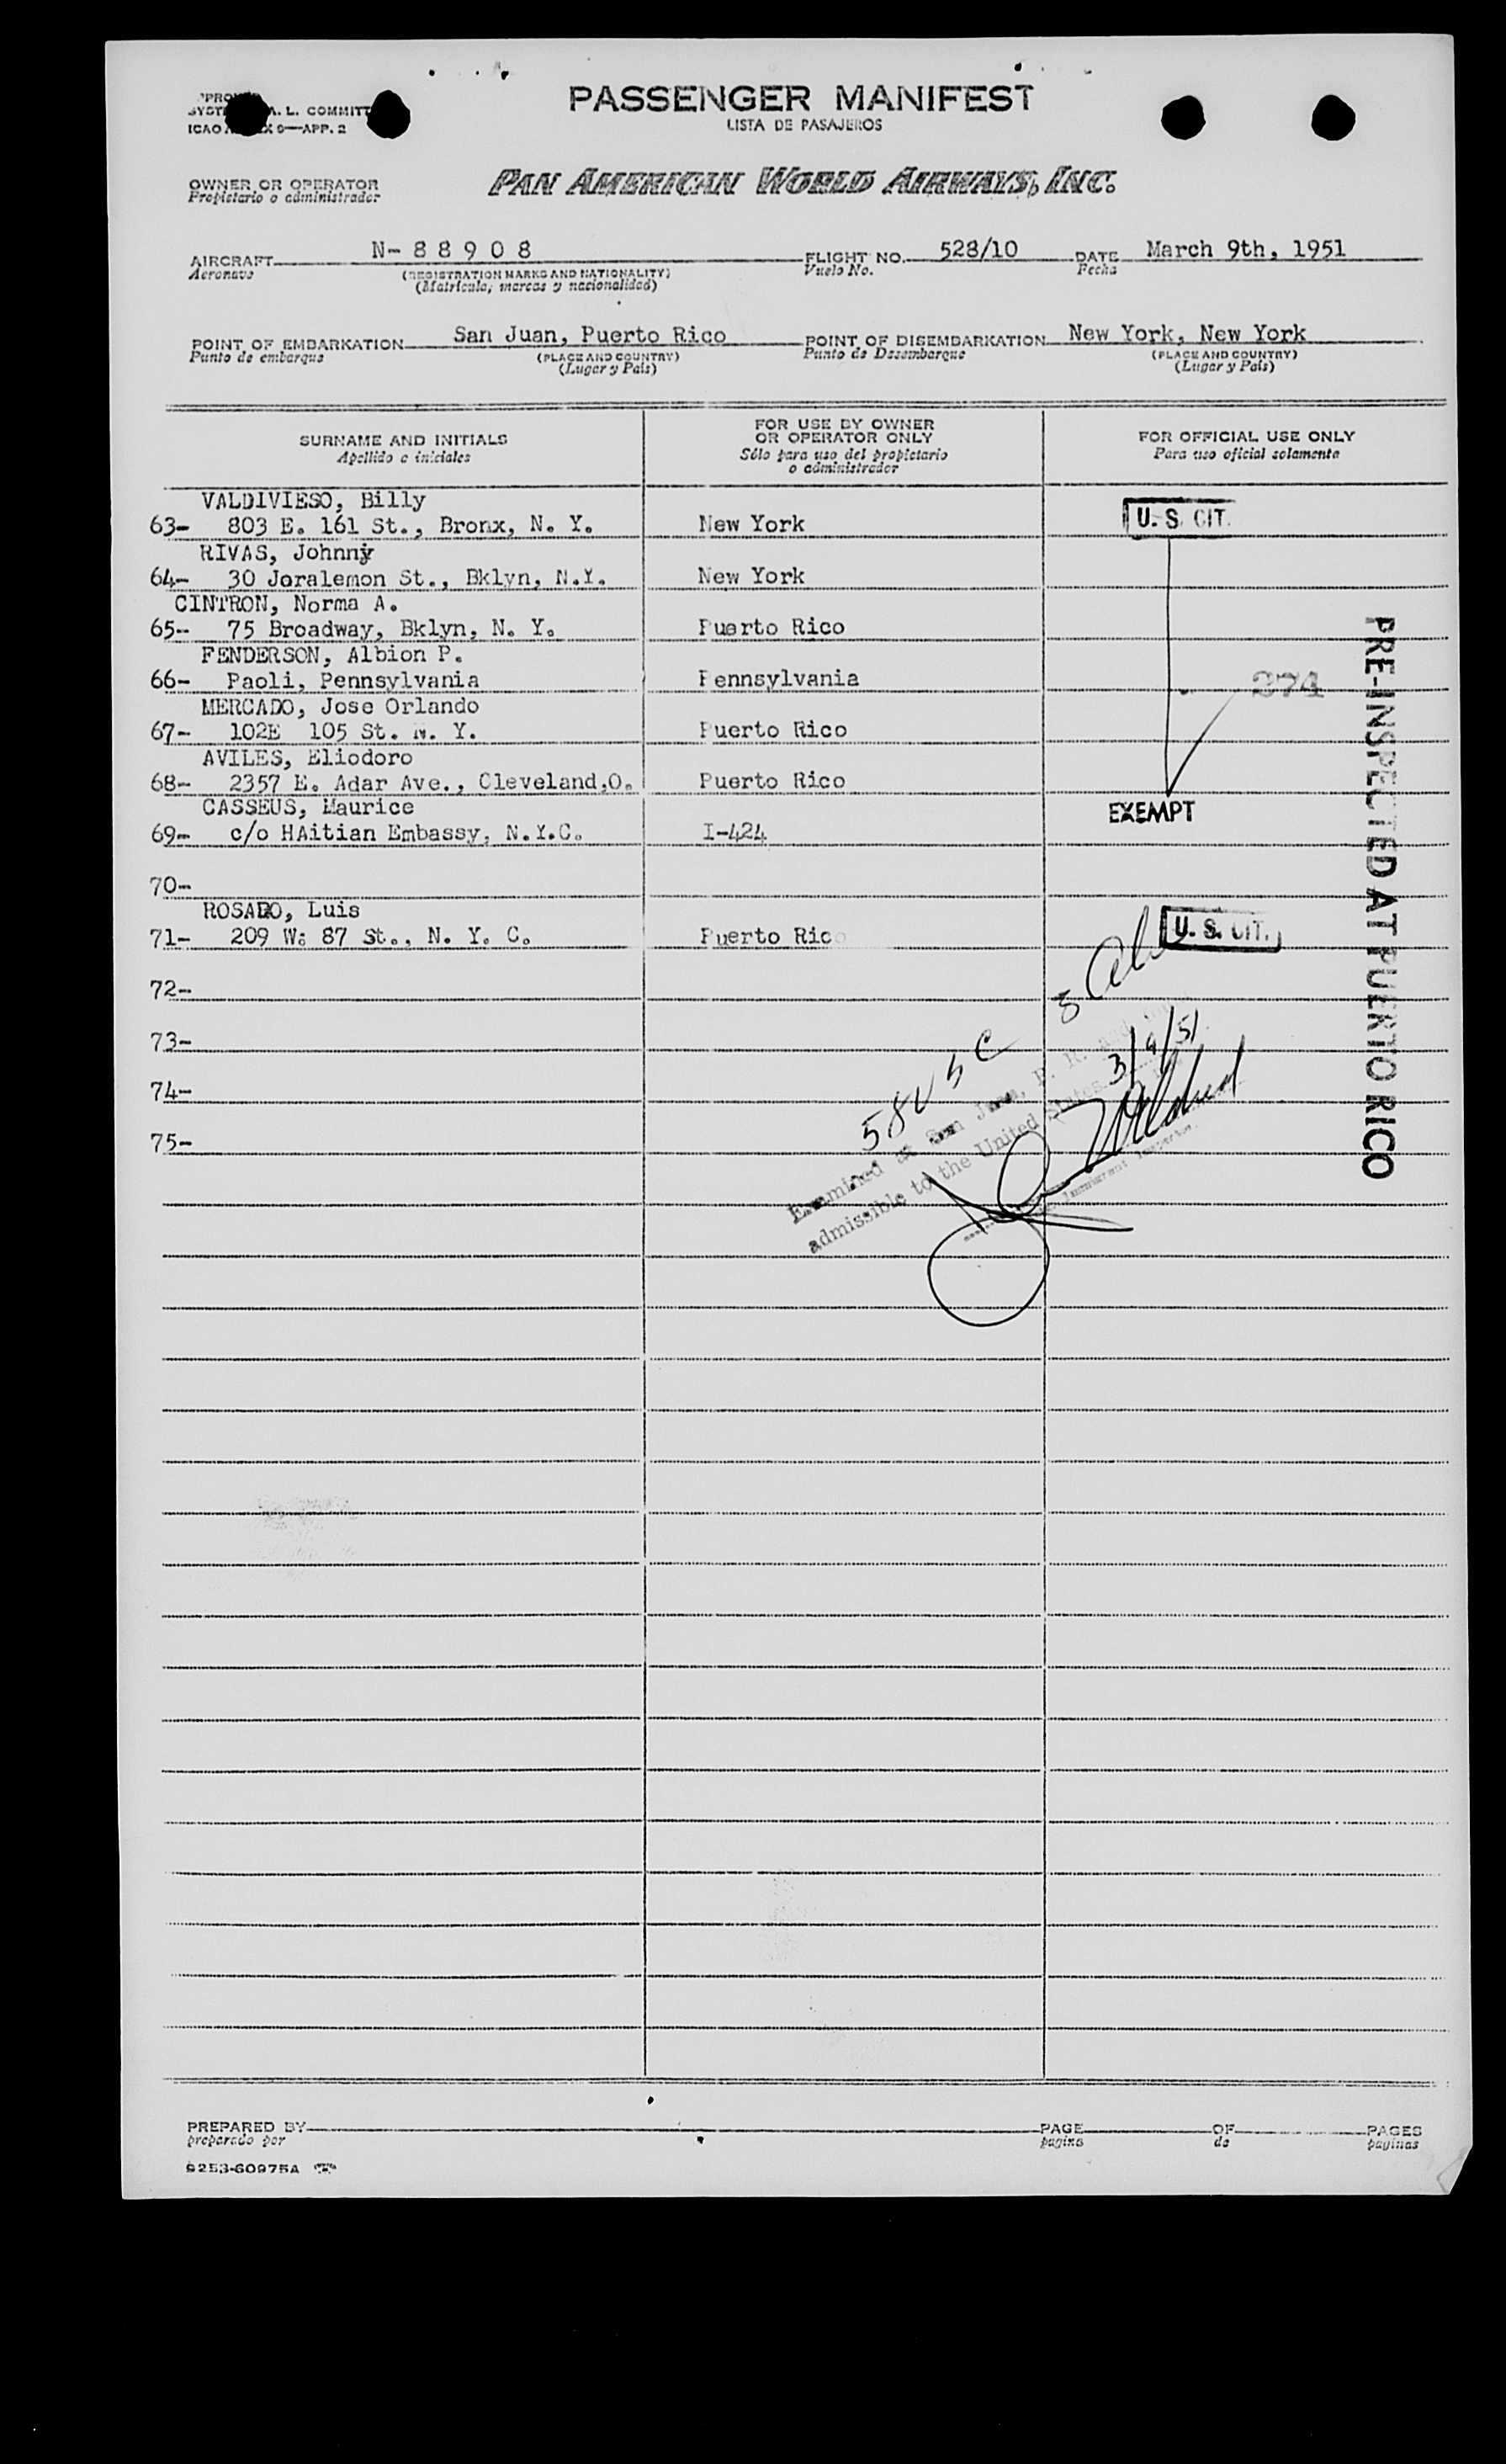 PASSENGER MANIFEST
LISTA DE PASAJEROS
A. L. COMMITT
ICAO 9—APP. 2
OWNER OR OPERATOR
Propietario o administrador
PAN AMERICAN WORLD AIRWAYS, INC.
AIRCRAFT N- 8 8 9 0 8 FLIGHT NO. 528/10 DATE March 9th, 1951
Aeronave (REGISTRATION MARKS AND NATIONALITY) Vuelo No. Fecha
(Matricula, marcas y nacionalidad)
POINT OF EMBARKATION San Juan, Puerto Rico POINT OF DISEMBARKATION New York, New York
Punto de embarque (PLACE AND COUNTRY) Punto de Desembarque (PLACE AND COUNTRY)
(Lugar y País) (Lugar y País)
SURNAME AND INITIALS
Apellido e iniciales
FOR USE BY OWNER
OR OPERATOR ONLY
Sólo para uso del propietario
o administrador
FOR OFFICIAL USE ONLY
Para uso oficial solamente
VALDIVIESO, Billy
63- 803 E. 161 St., Bronx, N. Y. New York U. S. CIT.
RIVAS, Johnny
64- 30 Joralemon St., Bklyn, N.Y. New York
CINTRON, Norma A.
65- 75 Broadway, Bklyn, N. Y. Puerto Rico
FENDERSON, Albion P.
66- Paoli, Pennsylvania Pennsylvania 274
MERCADO, Jose Orlando
67- 102E 105 St. N. Y. Puerto Rico
AVILES, Eliodoro
68- 2357 E. Adar Ave., Cleveland,O. Puerto Rico
CASSEUS, Maurice EXEMPT
69- c/o HAitian Embassy, N.Y.C. I-424
70-
ROSADO, Luis
71- 209 W: 87 St., N. Y. C. Puerto Rico U. S. CIT.
72-
73-
74-
75-
PRE-INSPECTED AT PUERTO RICO
3/9/51
Examined at San Juan, P. R. and
admissible to the United States
Immigrant Inspector
PREPARED BY PAGE OF PAGES
preparado por pagina de paginas
9253-60975A